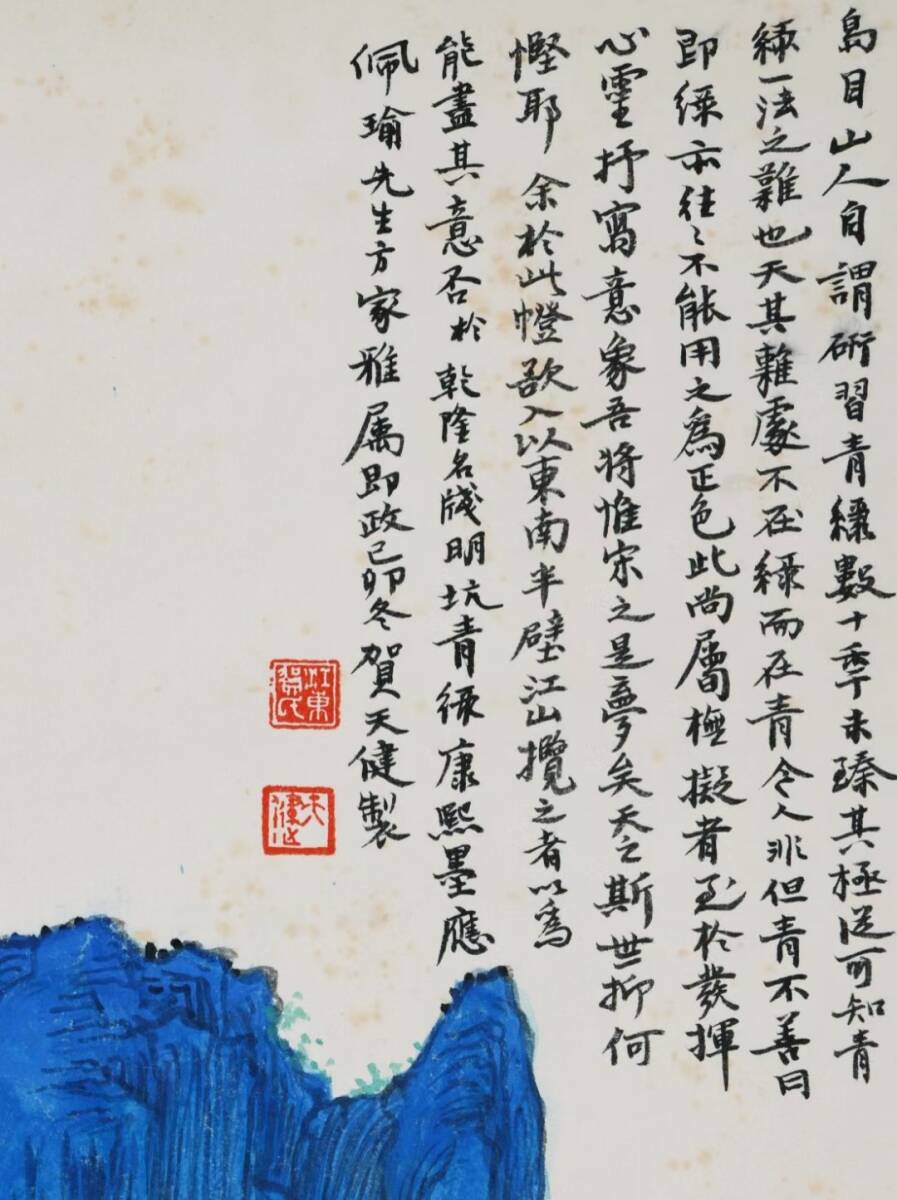 烏目山人自謂研習青綠數十季未臻其極從可知青
綠一法之難也夫其難處不在綠而在青今人非但青不善用
即綠亦往往不能用之為正色此尚屬橅擬者至於發揮
心靈抒寫意象吾將惟宋之是夢矣天之斯世抑何
慳耶 余於此幀欲入以東南半壁江山攬之者以為
能盡其意否於乾隆名牋明坑青綠康熙墨應
佩瑜先生方家雅属即政己卯冬賀天健製
江東
天健